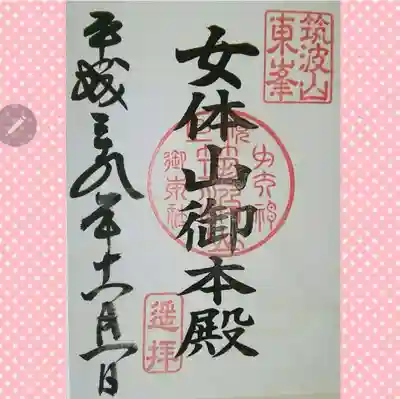 筑波山
東峯
女体山御本殿
遥拝
平成二九年十一月一日